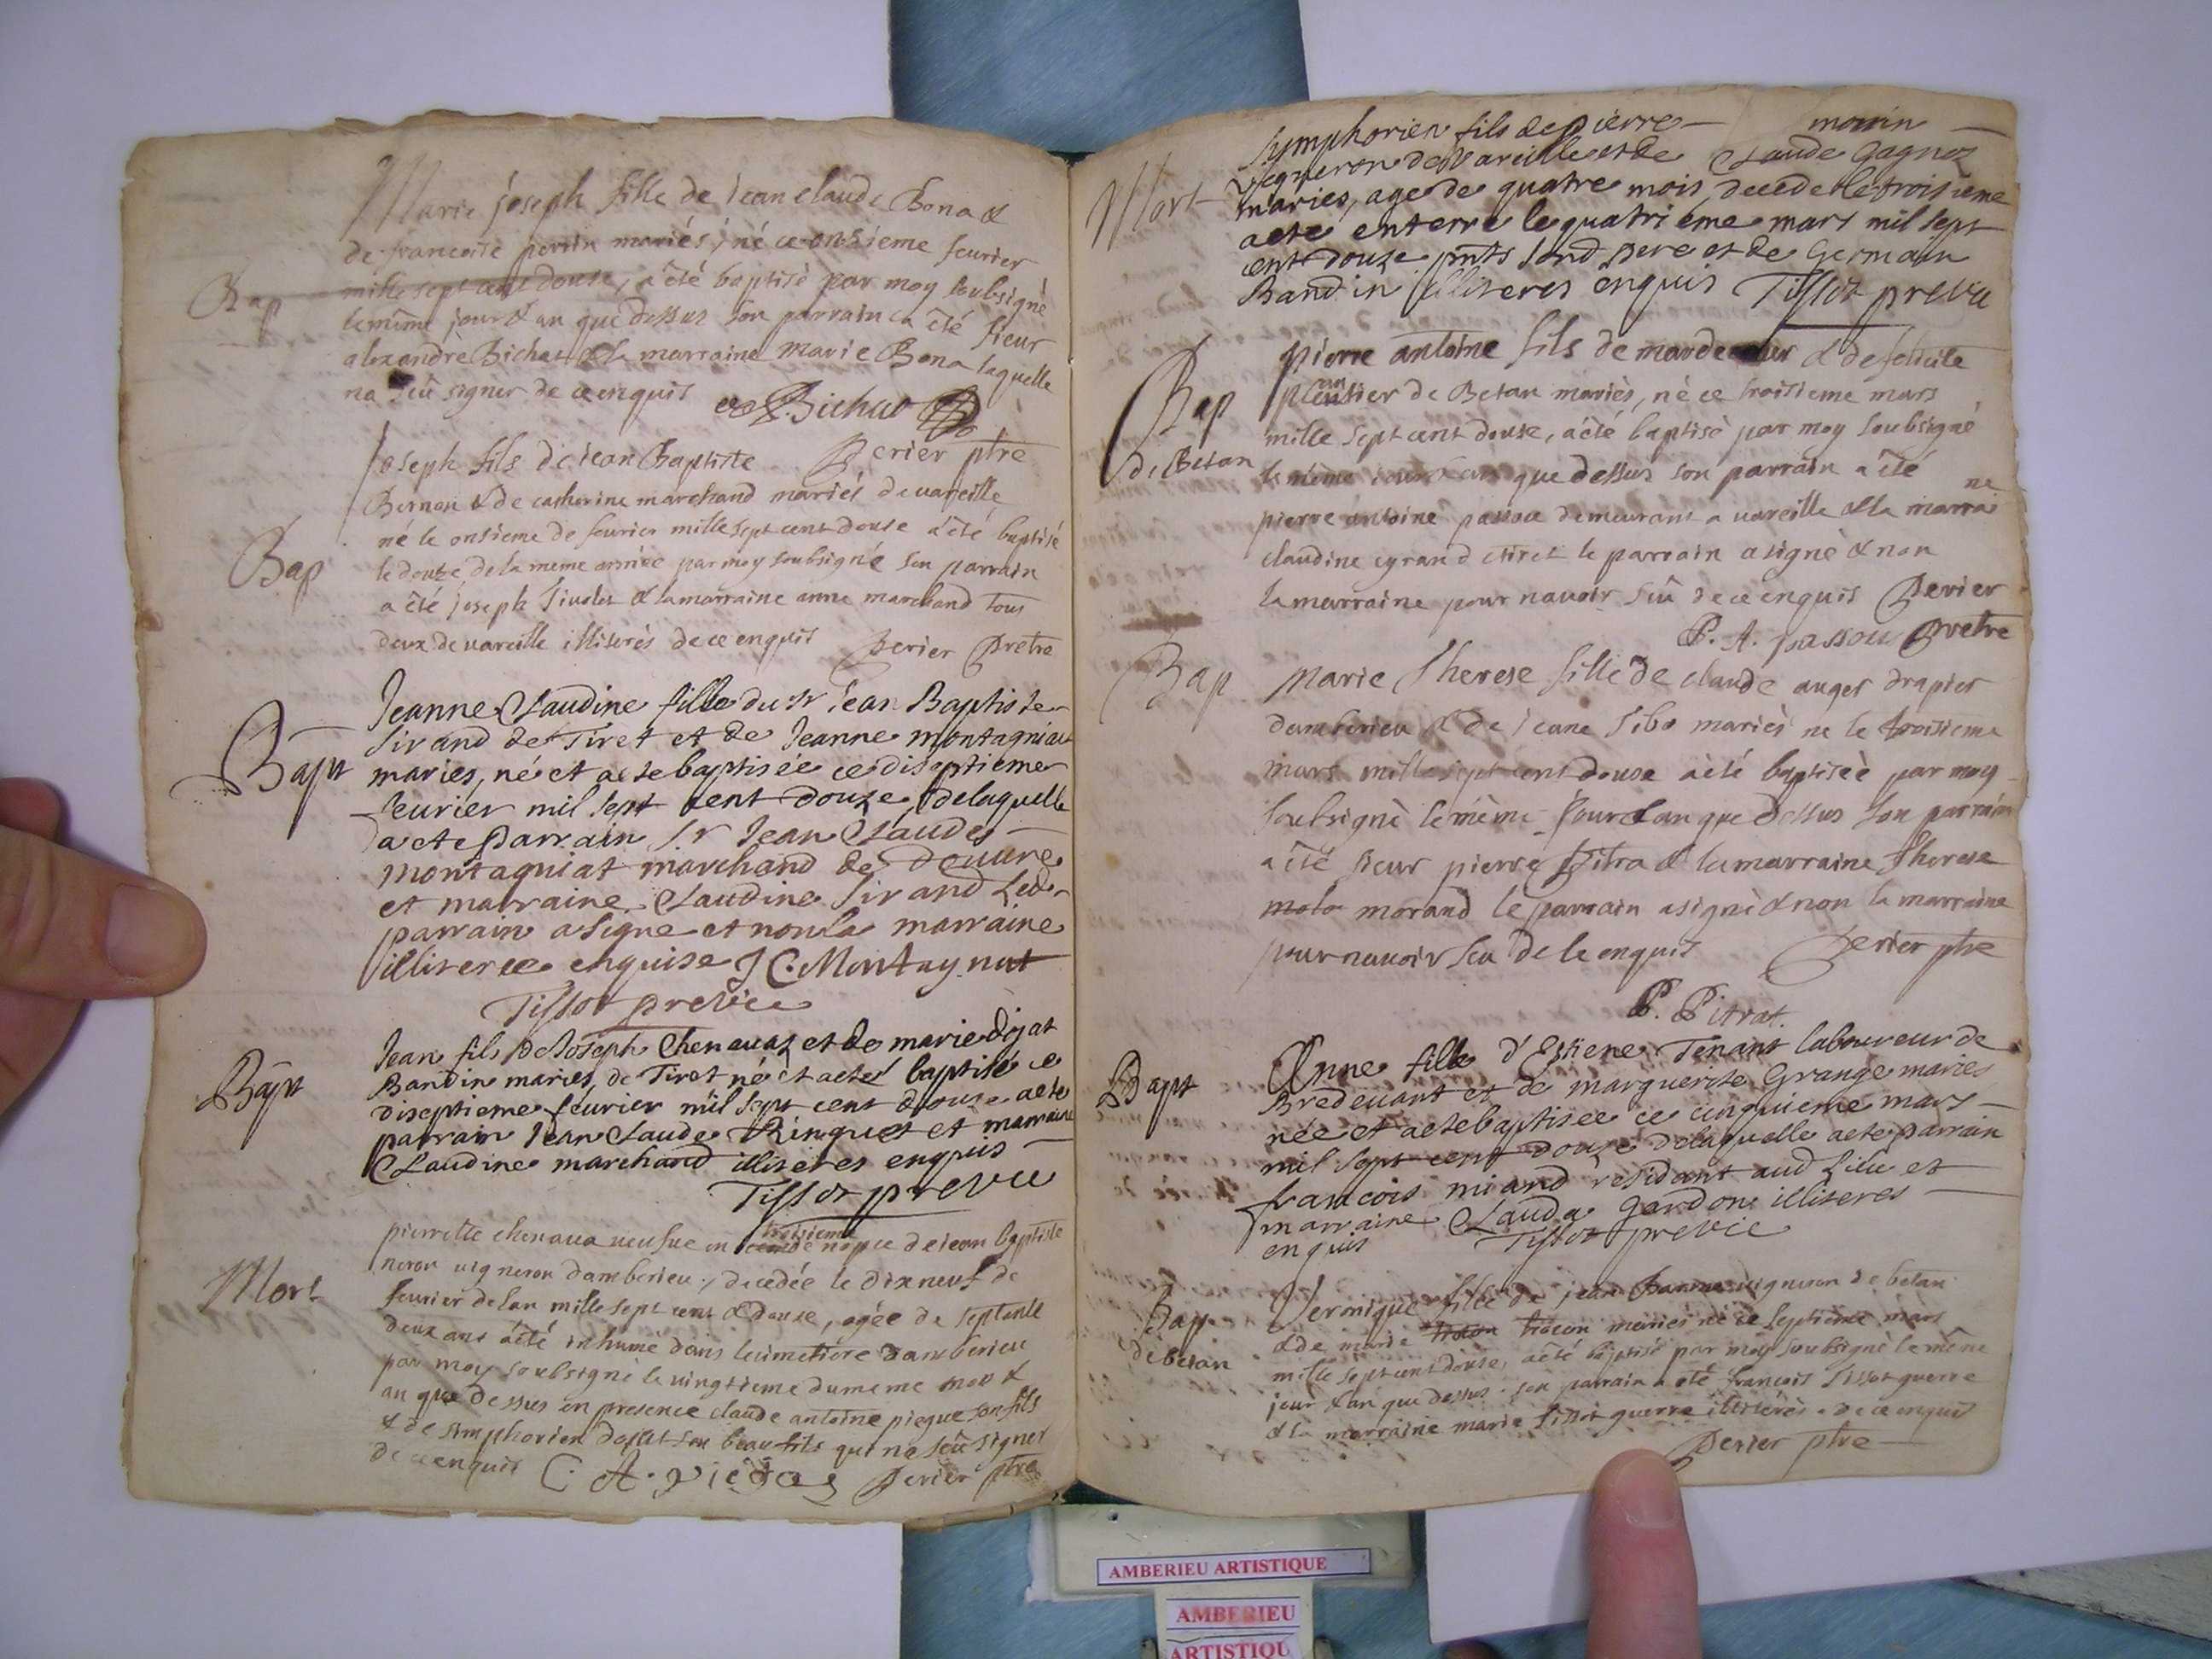 Marie joseph fille de jean claude Bona &
de francoise perrin mariés, né ce onsieme feurier
Bap
mille sept cent douse, a été baptisé par moy soubsigné
le même jour & an que dessus son parrain a été sieur
alexandre Bichat & la marraine Marie Bona laquelle
na seû signer de ce enquis Bichat
Perier ptre
Joseph fils de jean Baptiste
Bernon & de catherine marchand mariés de uareille
né le onsieme de feurier mille sept cent douse a été baptisé
Bap
le douze de la meme année par moy soubsigné son parrain
a été joseph & la marraine anne marchand tous
deux de uareille illiterés de ce enquis Perier Pretre
Jeanne Claudine fille du Sr Jean Baptiste
Sirand de Tiret et de Jeanne montagniat
Bapt
maries, né et a ete baptisée ce diseptieme
feurier mil sept cent douze, de laquelle
a ete parrain Sr Jean Claude
montagniat marchand de Douure
et marraine Claudine Sirand Led
parrain a signe et non la marraine
illiteree enquise J C. Montagnat
Tissot previc
Jean fils de Joseph Chenauaz et de marie dijat
Bapt
Bandin maries, de Tiret né et a eté baptisé ce
diseptieme feurier mil sept cent douze a ete
parrain Jean Claude Ringuet et marraine
Claudine marchand illiteres enquis
Tissot previc
pierrette chenaua ueufue en troisieme nopce de jean baptiste
neron uigneron damberieu, decedée le dix neuf de
Mort
feurier de lan mille sept cent & douse, agée de septante
deux ans a été inhumé dans le cimetiére damberieu
par moy soubsigné le uingtieme du meme mois &
an que dessus en presence claude antoine piegue son fils
& de simphorien dajat son beau fils qui na seû signer
de ce enquis C. A. Perier ptre
Symphorien fils de pierre morin
uigneron de Vareille et de Claude Gagnoz
Mort
maries, age de quatre mois decede le troisieme
a eté enterre le quatriéme mars mil sept
cent douze pnts sond pere et de Germain
Bandin illiteres enquis Tissot previc
pierre antoine fils de & de felicite
Bap
plantier de Betan mariés, né ce troisieme mars
mille sept cent douse, a été baptisé par moy soubsigné
de Betan
le même jour & an que dessus son parrain a été
pierre antoine passou demeurant a uareille & la marraine
claudine cyrand Tiret le parrain a signé & non
la marraine pour nauoir sû de ce enquis Perier
P. A. passou pretre
Bap
Marie Therese fille de claude auger drapier
damberieu & de jeane Sibo mariés ne le troisieme
mars mille sept cent douse a été baptiséé par moy
soubsigné le même jour & an que dessus son parrain
a été sieur pierre Pitra & la marraine Therese
molo morand le parrain a signé & non la marraine
pour nauoir seu de ce enquis Perier ptre
P. Pitrat.
Anne fille d'Estiene Tenant laboureur de
Bapt
Bredeuant et de marguerite Grange maries
née et a ete baptisee ce cinquieme mars
mil sept cent douze de laquelle a ete parrain
francois miand residant aud Lieu et
marraine Clauda Gardon illiteres
enquis Tissot previc
Veronique fille de jean uigneron de betan
Bap
& de marie mariés né ce septieme mars
de betan
mille sept cent douse, a été baptisé par moy soubsigné le même
jour & an que dessus. son parrain a été francois Tissot guerre
& la marraine marie Tissot guerre illiterés de ce enquis
Perier ptre
AMBERIEU ARTISTIQUE
AMBERIEU
ARTISTIQU